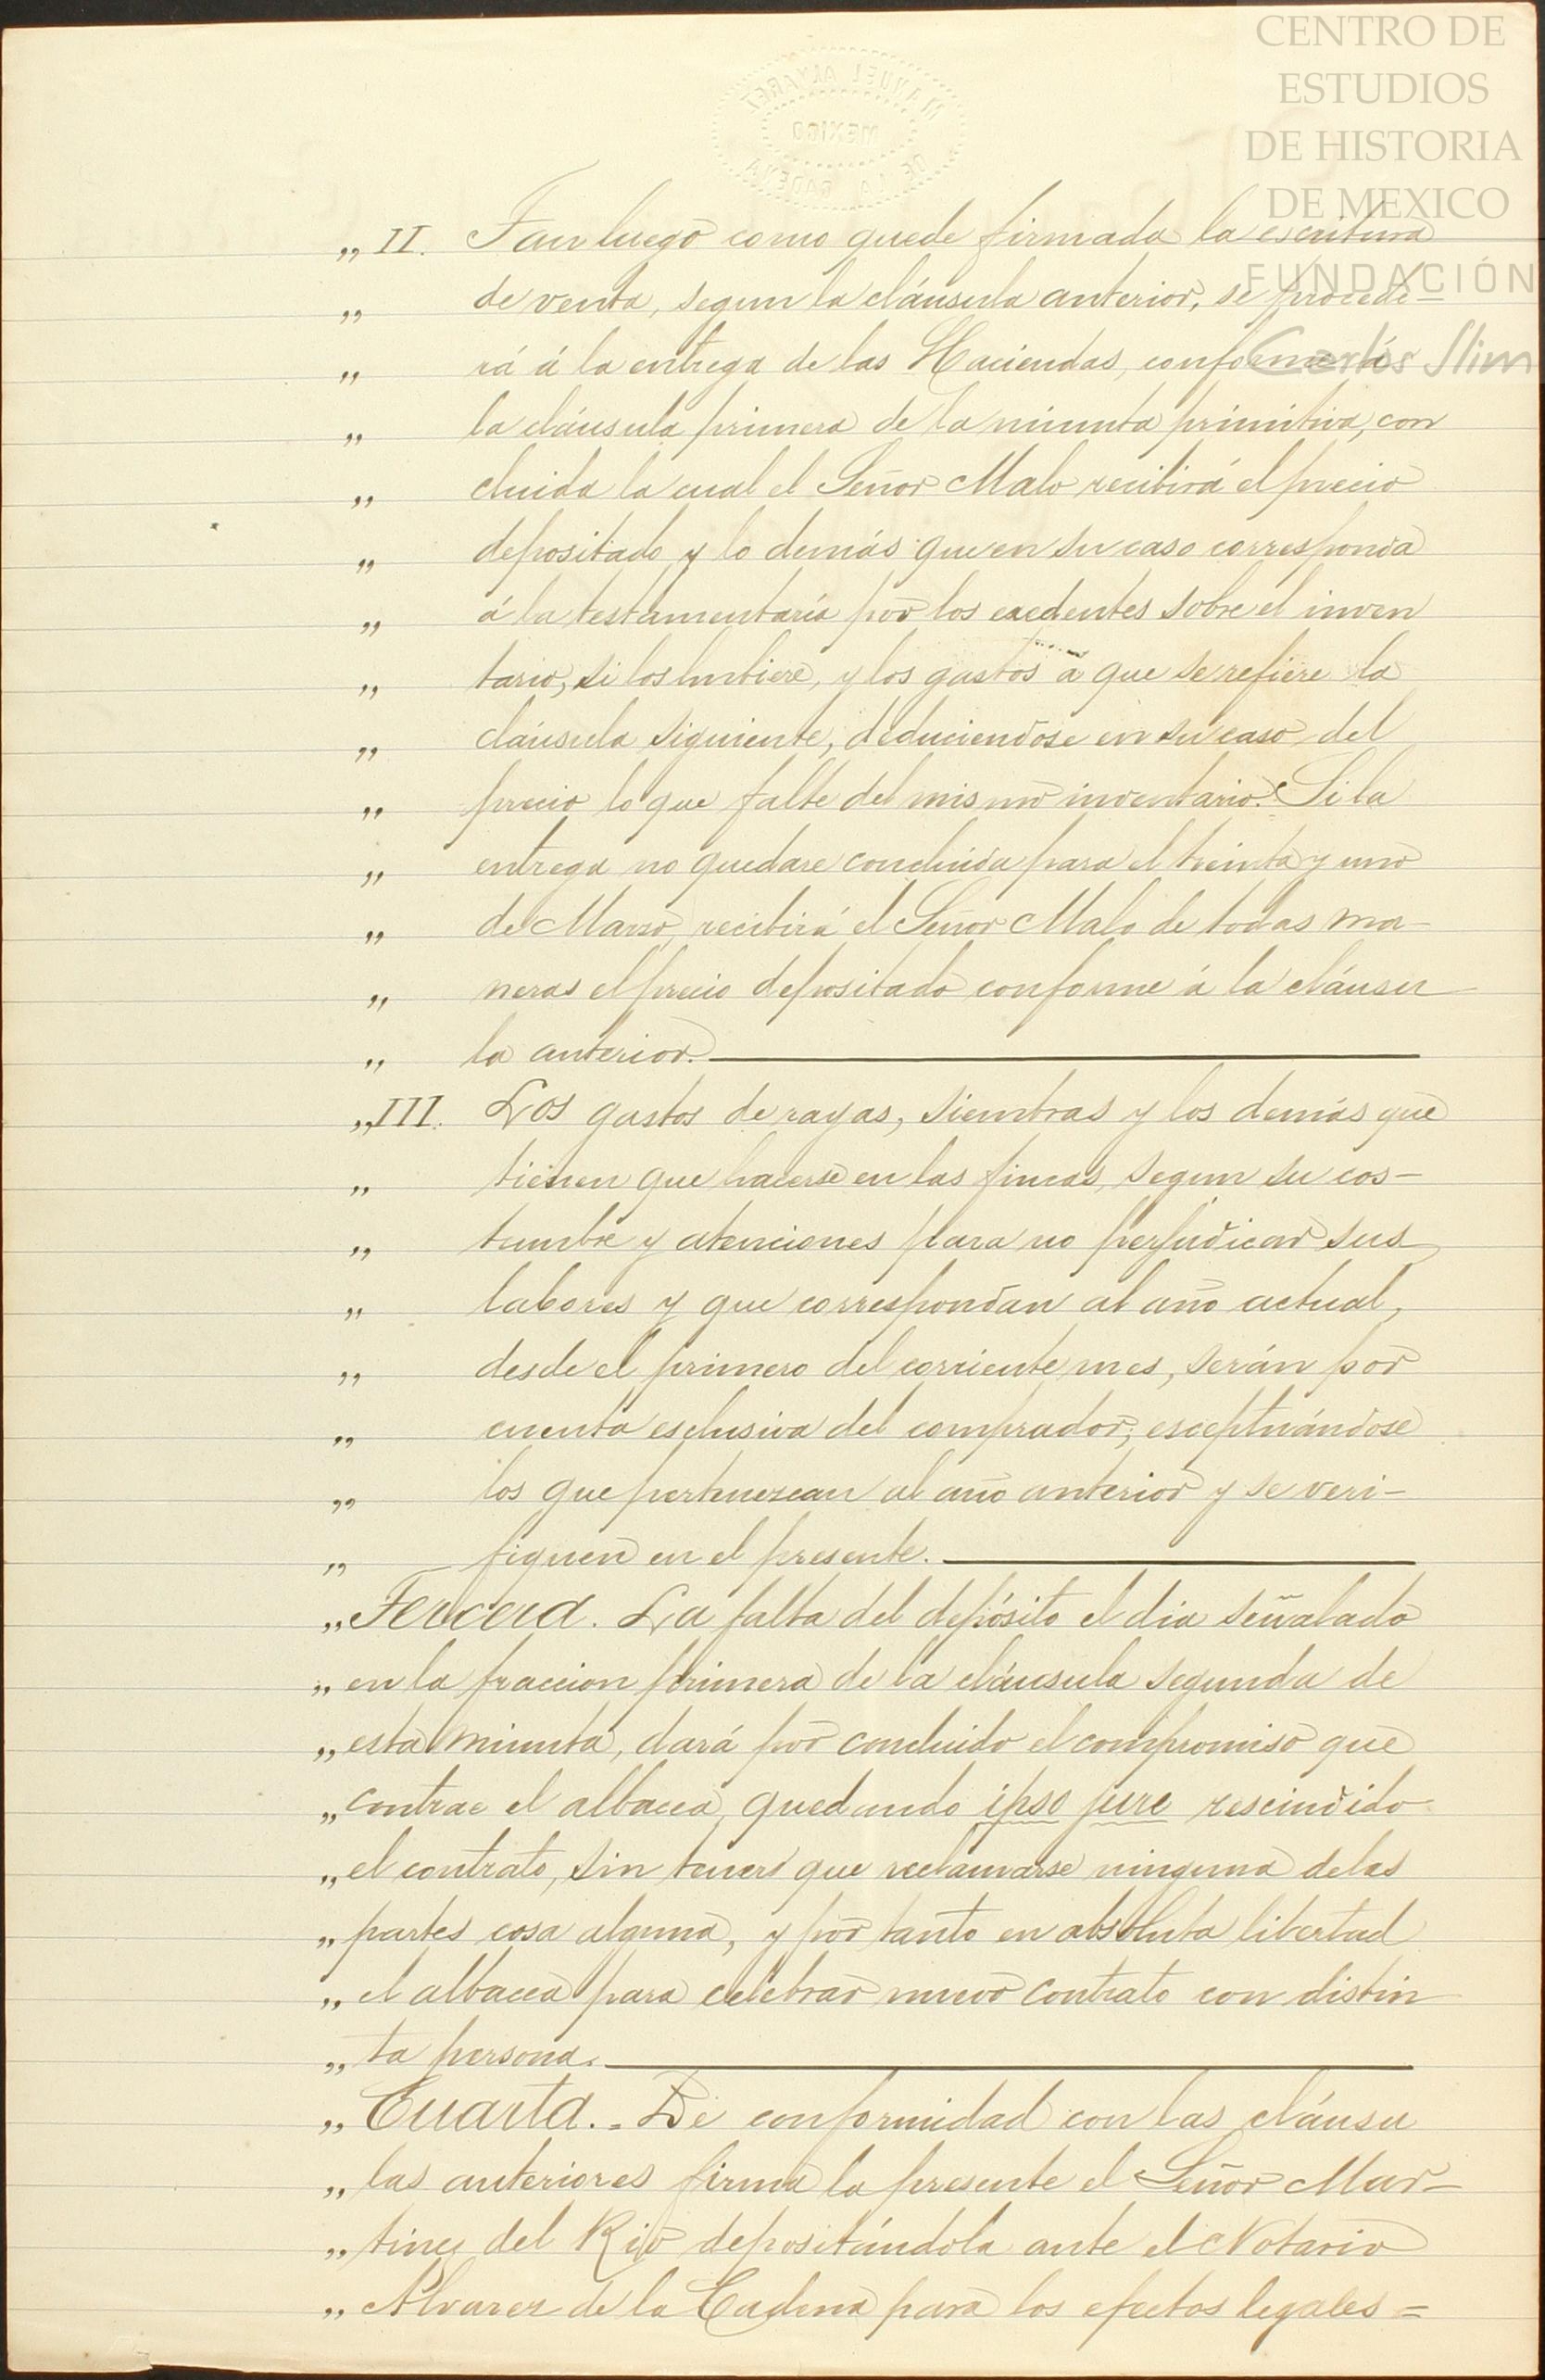 CENTRO DE
ESTUDIOS
DE HISTORIA
DE MEXICO
FUNDACIÓN
Carlos Slim
MANUEL ALVAREZ
MEXICO
DE LA CADENA
„ II. Tan luego como quede firmada la escritura
„ de venta, segun la cláusula anterior, se procede-
„ rá á la entrega de las Haciendas, conforme á
„ la cláusula primera de la minuta primitiva, con
„ cluida la cual el Señor Malo recibirá el precio
„ depositado y lo demás que en su caso corresponda
„ á la testamentaría por los exedentes sobre el inven
„ tario, si los hubiere, y los gastos á que se refiere la
„ cláusula siguiente, deduciendose en su caso del
„ precio lo que falte del mismo inventario. Si la
„ entrega no quedare concluida para el treinta y uno
„ de Marzo, recibirá el Señor Malo de todas ma-
„ neras el precio depositado conforme á la cláusu
„ la anterior.
„ III. Los gastos de rayas, siembras y los demás que
„ tienen que hacerse en las fincas, segun su cos-
„ tumbre y atenciones para no perjudicar sus
„ labores y que correspondan al año actual,
„ desde el primero del corriente mes, serán por
„ cuenta esclusiva del comprador, esceptuándose
„ los que pertenezcan al año anterior y se veri-
„ fiquen en el presente.
„ Tercera. La falta del depósito el dia señalado
„ en la fraccion primera de la cláusula segunda de
„ esta minuta, dará por concluido el compromiso que
„ contrae el albacea, quedando ipso jure rescindido
„ el contrato, sin tener que reclamarse ninguna de las
„ partes cosa alguna, y por tanto en absoluta libertad
„ el albacea para celebrar nuevo contrato con distin
„ ta persona.
„ Cuarta.= De conformidad con las cláusu
„ las anteriores firma la presente el Señor Mar-
„ tinez del Rio depositándola ante el Notario
„ Alvarez de la Cadena para los efectos legales=